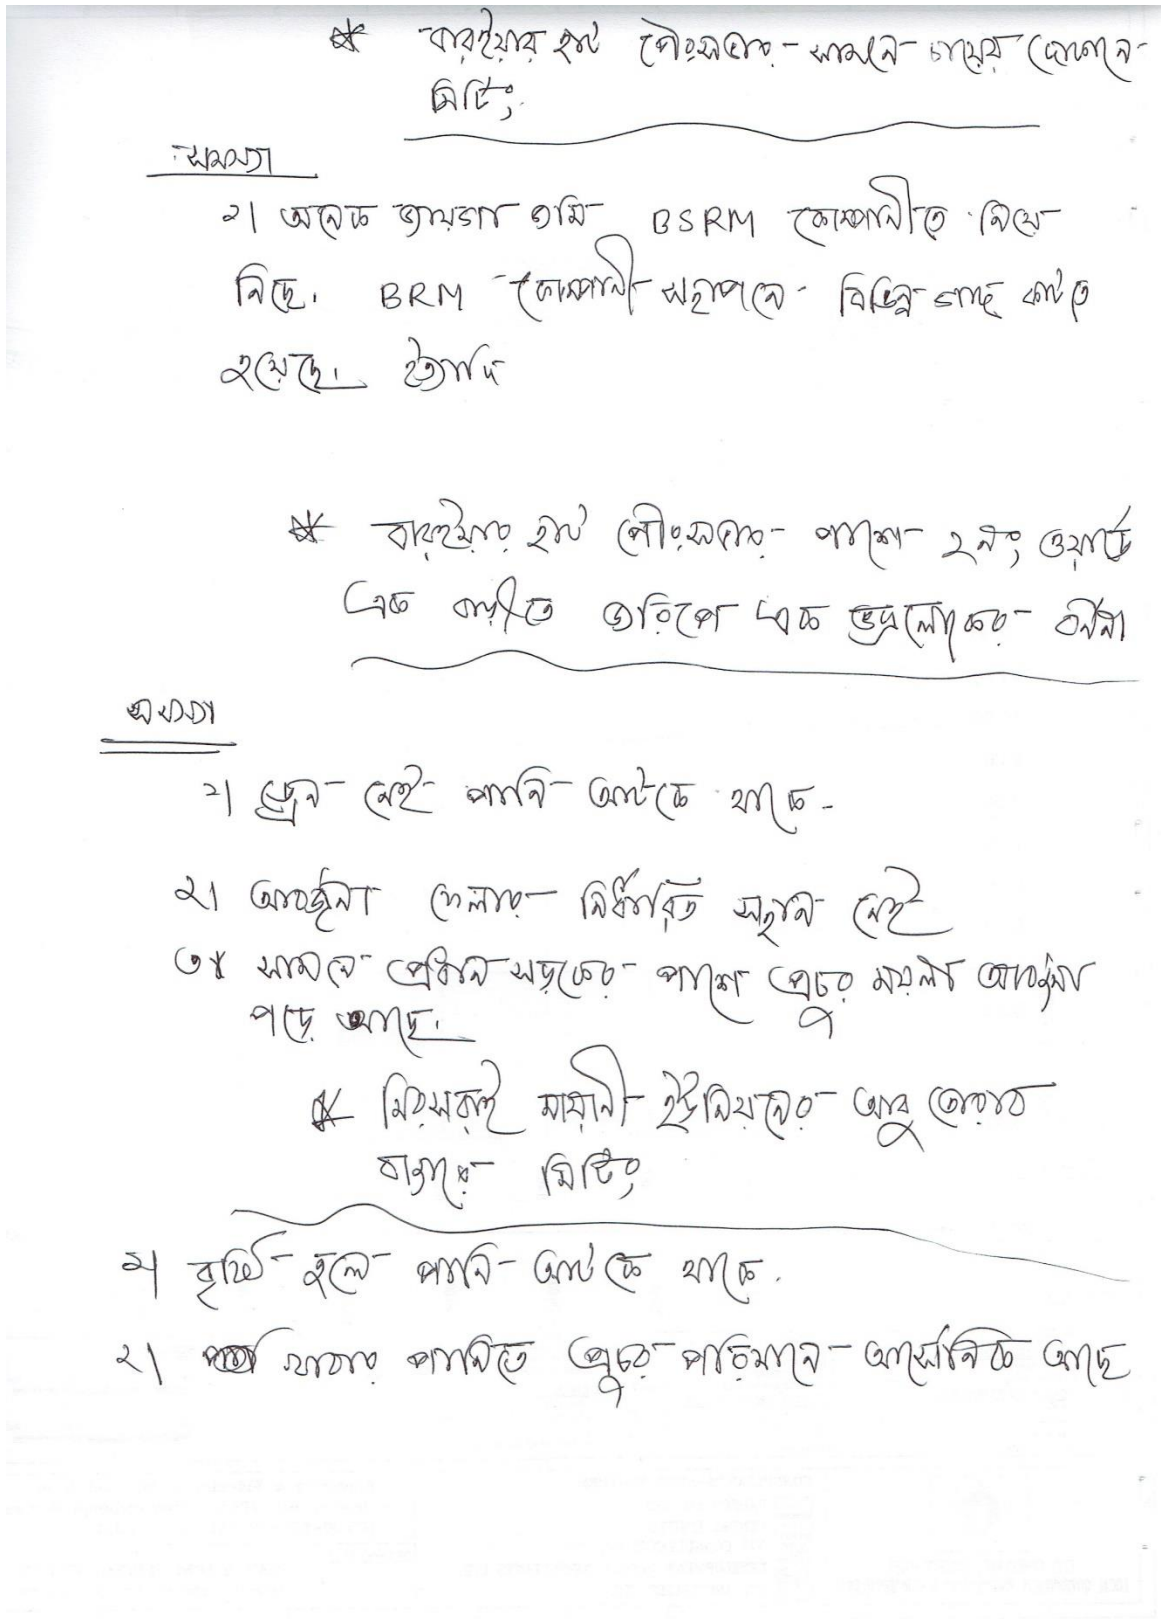 * বারইয়ার হাট পৌরসভার সামনে চায়ের দোকানে
মিটিং
সমস্যা
১। অনেক জায়গা জমি BSRM কোম্পানীতে নিয়ে
নিছে। BRM কোম্পানী স্হাপনে বিভিন্ন গাছ কাটতে
হয়েছে। ইত্যাদি
* বারইয়ার হাট পৌরসভার পাশে ২নং ওয়ার্ডে
এক বাড়ীতে জরিপে এক ভদ্রলোকের বর্ননা
সমস্যা
১। ড্রেন নেই পানি আটকে থাকে।
২। আবর্জনা ফেলার নির্ধারিত স্হান নেই
৩। সামনে প্রধান সড়কের পাশে প্রচুর ময়লা আবর্জনা
পড়ে আছে।
* মিরসরাই মায়ানী ইউনিয়নের আবু তোরাব
বাজারে মিটিং
১। বৃষ্টি হলে পানি আটকে থাকে।
২। খাবার পানিতে প্রচুর পরিমানে আর্সেনিক আছে